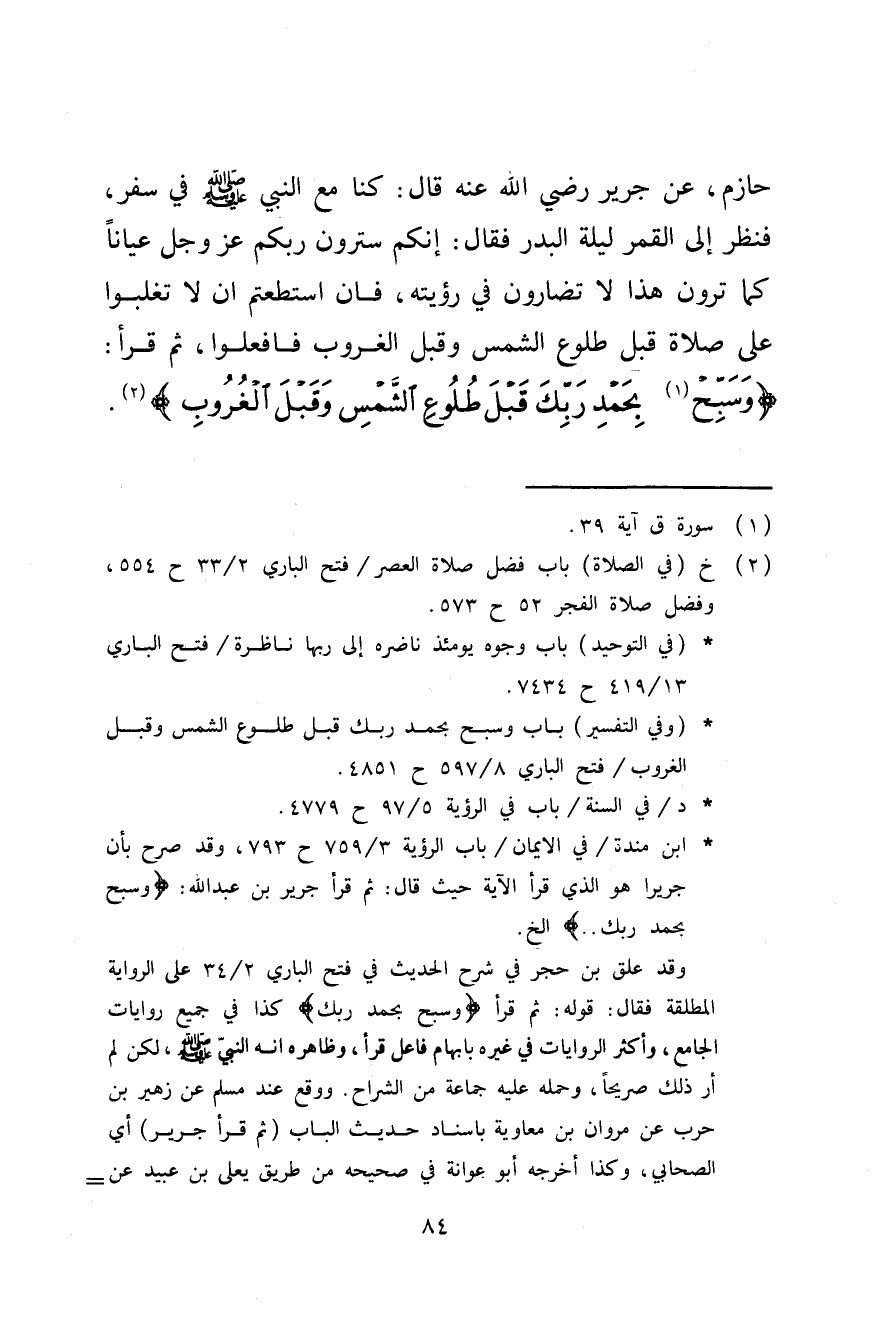 حازم، عن جرير رضي الله عنه قال: كنا مع النبي ﷺ في سفر،
فنظر إلى القمر ليلة البدر فقال: إنكم سترون ربكم عز وجل عياناً
كما ترون هذا لا تضارون في رؤيته، فـان استطعتم ان لا تغلبـوا
على صلاة قبل طلوع الشمس وقبل الغـروب فـافعلـوا، ثم قـرأ:
﴿وَسَبِّحْ (١) بِحَمْدِ رَبِّكَ قَبْلَ طُلُوعِ ٱلشَّمْسِ وَقَبْلَ ٱلْغُرُوبِ﴾ (٢).
(١) سورة ق آية ٣٩.
(٢) خ (في الصلاة) باب فضل صلاة العصر / فتح الباري ٣٣/٢ ح ٥٥٤،
وفضل صلاة الفجر ٥٢ ح ٥٧٣.
* (في التوحيد) باب وجوه يومئذ ناضره إلى ربها نـاظـرة / فتـح البـاري
٤١٩/١٣ ح ٧٤٣٤.
* (وفي التفسير) بـاب وسبـح بحمـد ربـك قبـل طلـوع الشمس وقبـل
الغروب / فتح الباري ٥٩٧/٨ ح ٤٨٥١.
* د / في السنة / باب في الرؤية ٩٧/٥ ح ٤٧٧٩.
* ابن مندة / في الايمان / باب الرؤية ٧٥٩/٣ ح ٧٩٣، وقد صرح بأن
جريرا هو الذي قرأ الآية حيث قال: ثم قرأ جرير بن عبدالله: ﴿وسبح
بحمد ربك..﴾ الخ.
وقد علق بن حجر في شرح الحديث في فتح الباري ٣٤/٢ على الرواية
المطلقة فقال: قوله: ثم قرأ ﴿وسبح بحمد ربك﴾ كذا في جميع روايات
الجامع، وأكثر الروايات في غيره بابهام فاعل قرأ، وظاهره انـه النبيّ ﷺ، لكن لم
أر ذلك صريحاً، وحمله عليه جماعة من الشراح. ووقع عند مسلم عن زهير بن
حرب عن مروان بن معاوية باسناد حـديـث البـاب (ثم قـرأ جـريـر) أي
الصحابي، وكذا أخرجه أبو عوانة في صحيحه من طريق يعلى بن عبيد عن =
٨٤